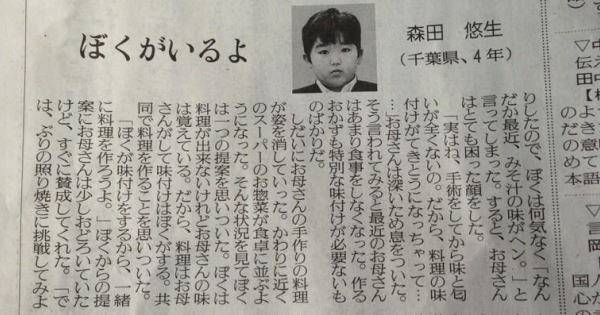 ぼくがいるよ
森田 悠生
(千葉県、4年)
りしたので、ぼくは何気なく「なん
だか最近、みそ汁の味がヘン。」と
言ってしまった。すると、お母さん
はとても困った顔をした。
「実はね、手術をしてから味と匂
いが全くないの。だから、料理の味
付けがてきとうになっちゃって…
…お母さんは深いため息をついた。
そう言われてみると最近のお母さん
はあまり食事をしなくなった。作る
おかずも特別な味付けが必要ないも
のばかりだ。
しだいにお母さんの手作りの料理
が姿を消していった。かわりに近く
のスーパーのお惣菜が食卓に並ぶよ
うになった。そんな状況を見てぼく
は一つの提案を思いついた。ぼくは
料理が出来ないけれどお母さんの味
は覚えている。だから、料理はお母
さんがして味付けはぼくがする。共
同で料理を作ることを思いついた。
「ぼくが味付けをするから、一緒
に料理を作ろうよ。」ぼくからの提
案にお母さんは少しおどろいていた
けど、すぐに賛成してくれた。「で
は、ぶりの照り焼きに挑戦してみよ